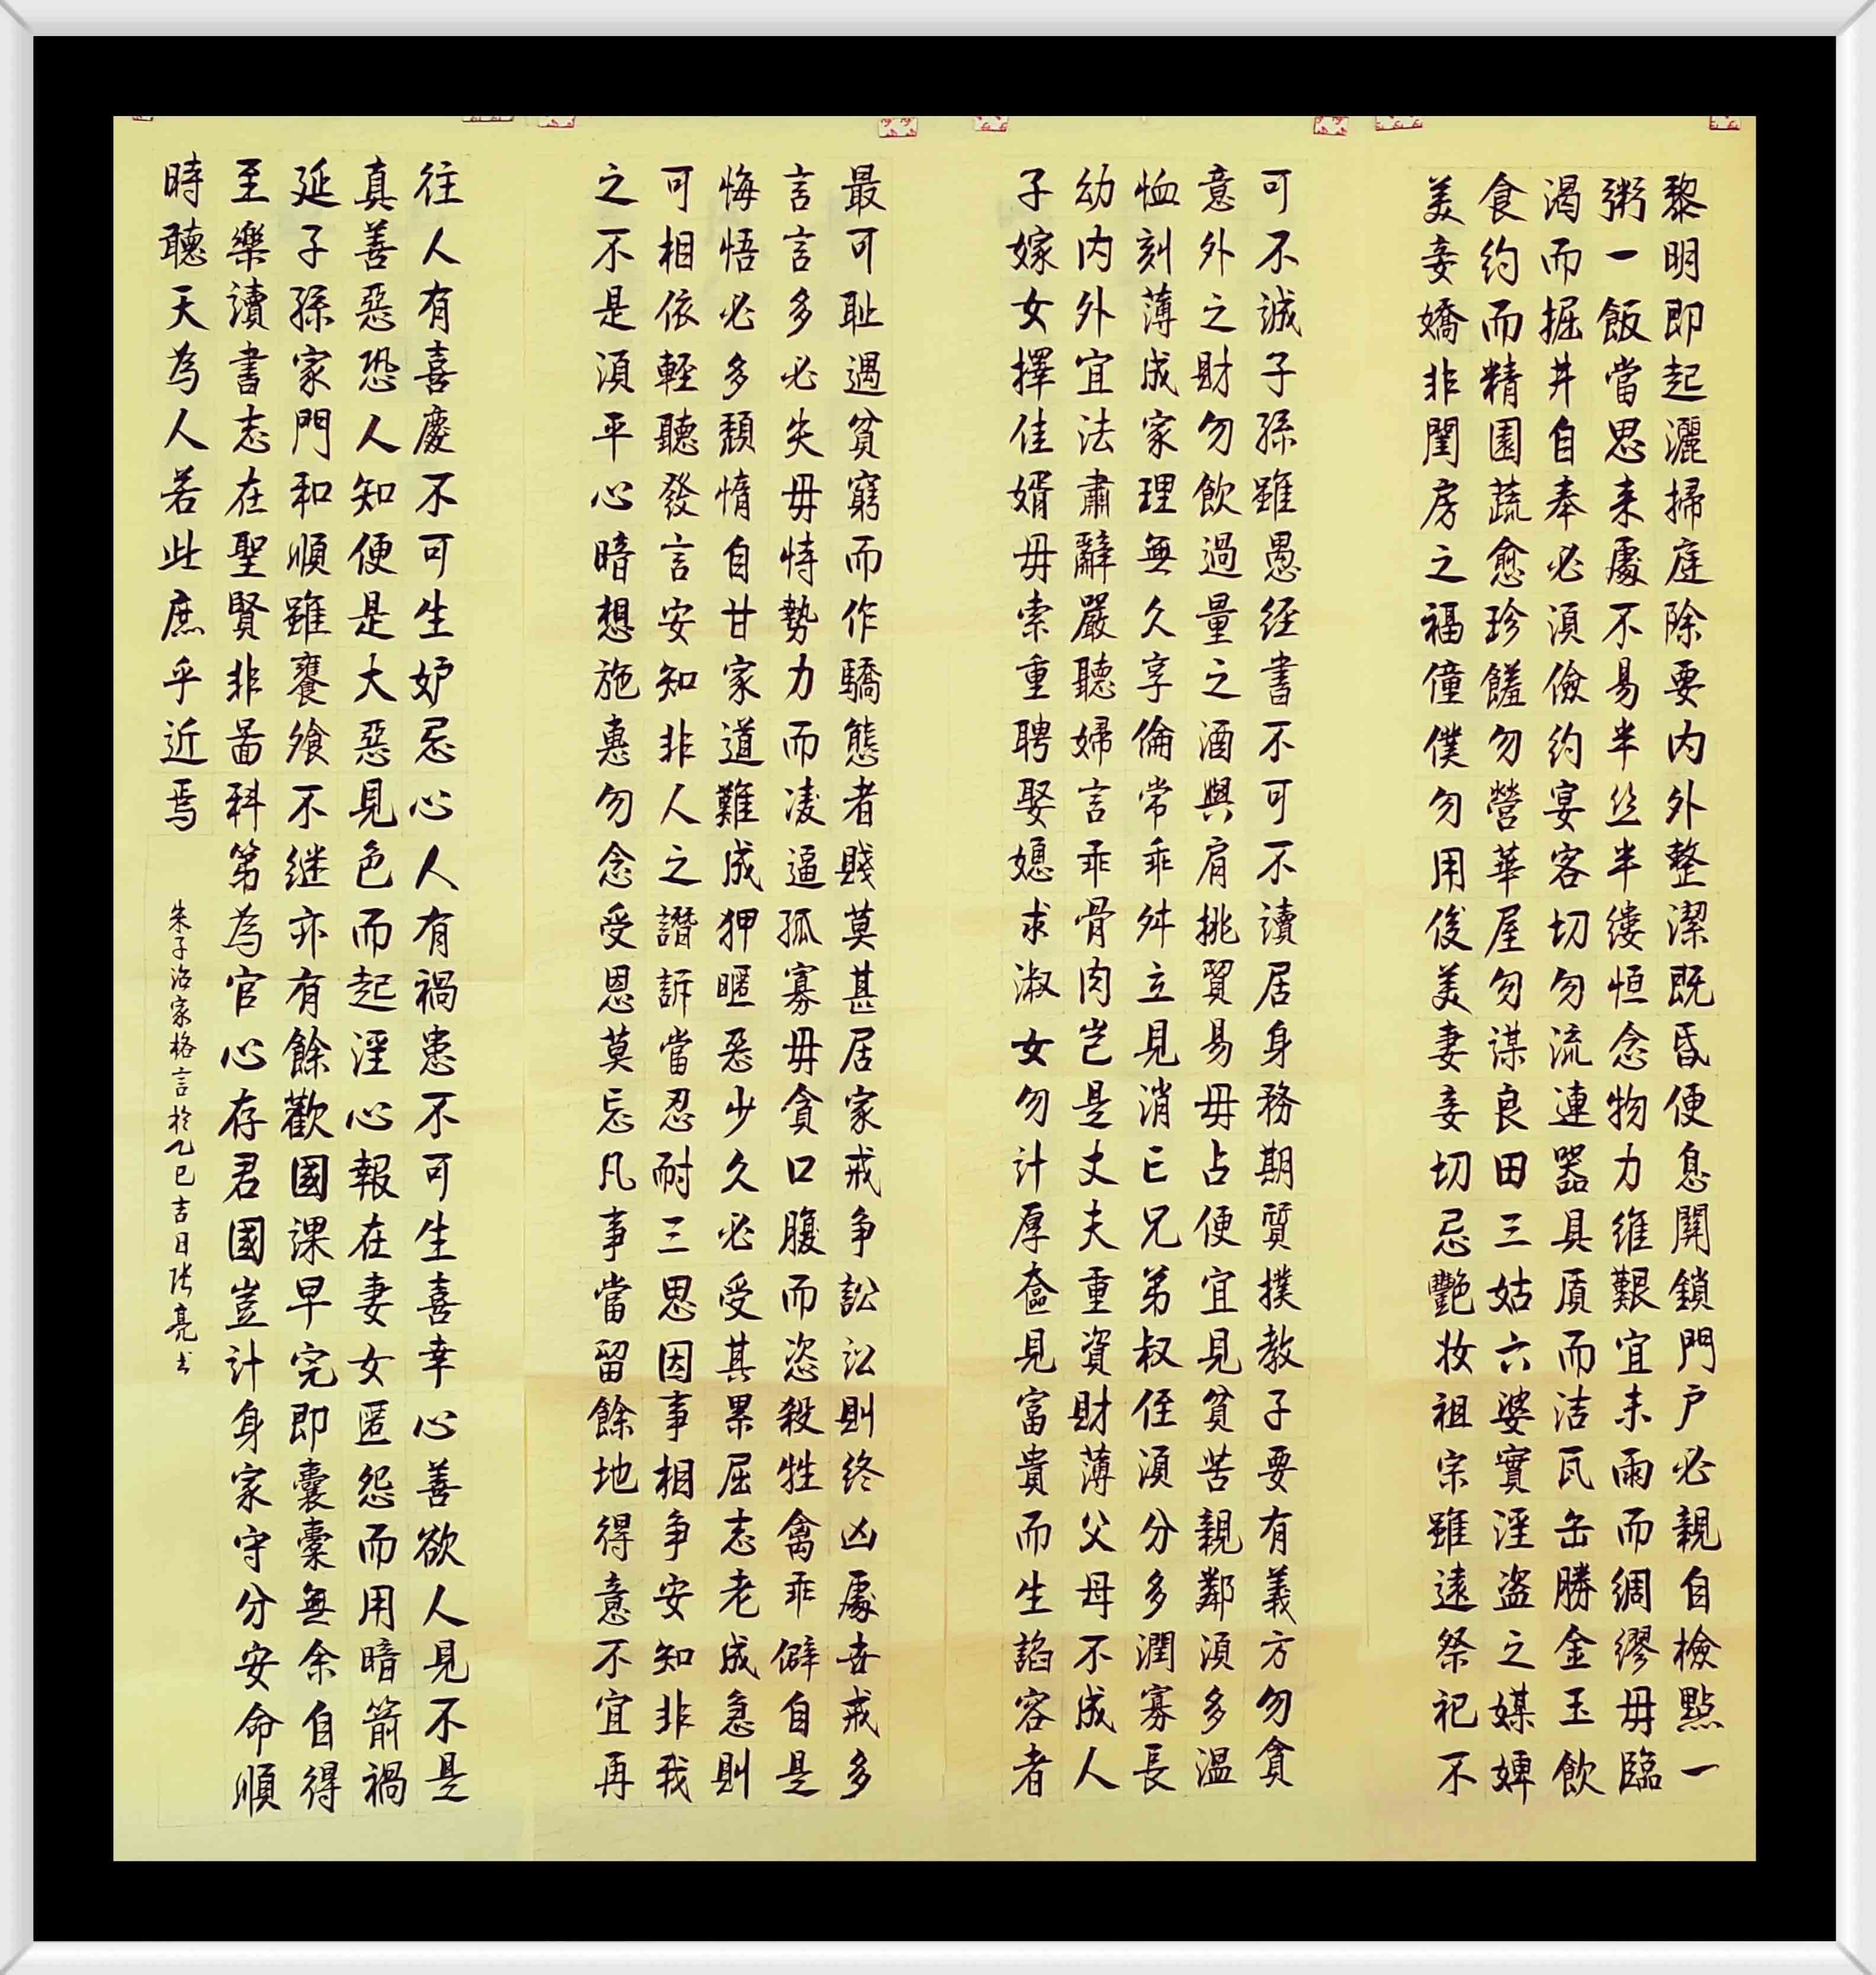 黎明即起灑掃庭除要内外整潔既昏便息關鎖門户必親自檢點一
粥一飯當思来處不易半丝半缕恒念物力维艱宜未雨而綢繆毋臨
渴而掘井自奉必須儉約宴客切勿流連器具質而洁瓦缶勝金玉飲
食約而精園蔬愈珍饈勿營華屋勿謀良田三姑六婆實淫盗之媒婢
美妾嬌非閨房之福僮僕勿用俊美妻妾切忌艷妝祖宗雖遠祭祀不
可不誠子孫雖愚经書不可不讀居身務期質撲教子要有義方勿貪
意外之財勿飲過量之酒與肩挑貿易毋占便宜見貧苦親鄰須多温
恤刻薄成家理無久享倫常乖舛立見消亡兄弟叔侄須分多潤寡長
幼内外宜法肅辭嚴聽婦言乖骨肉岂是丈夫重資財薄父母不成人
子嫁女擇佳婿毋索重聘娶媳求淑女勿计厚奩見富貴而生諂容者
最可耻遇貧窮而作驕態者賤莫甚居家戒争訟訟則终凶處世戒多
言言多必失毋恃勢力而凌逼孤寡毋貪口腹而恣殺牲禽乖僻自是
悔悟必多頽惰自甘家道難成狎暱惡少久必受其累屈志老成急則
可相依輕聽發言安知非人之譖訴當忍耐三思因事相争安知非我
之不是須平心暗想施惠勿念受恩莫忘凡事當留餘地得意不宜再
往人有喜慶不可生妒忌心人有禍患不可生喜幸心善欲人見不是
真善惡恐人知便是大惡見色而起淫心報在妻女匿怨而用暗箭禍
延子孫家門和順雖饔飧不继亦有餘歡國課早完即囊橐無余自得
至樂讀書志在聖賢非圖科第為官心存君國豈計身家守分安命順
時聽天為人若此庶乎近焉
朱子治家格言於乙巳吉日张亮书